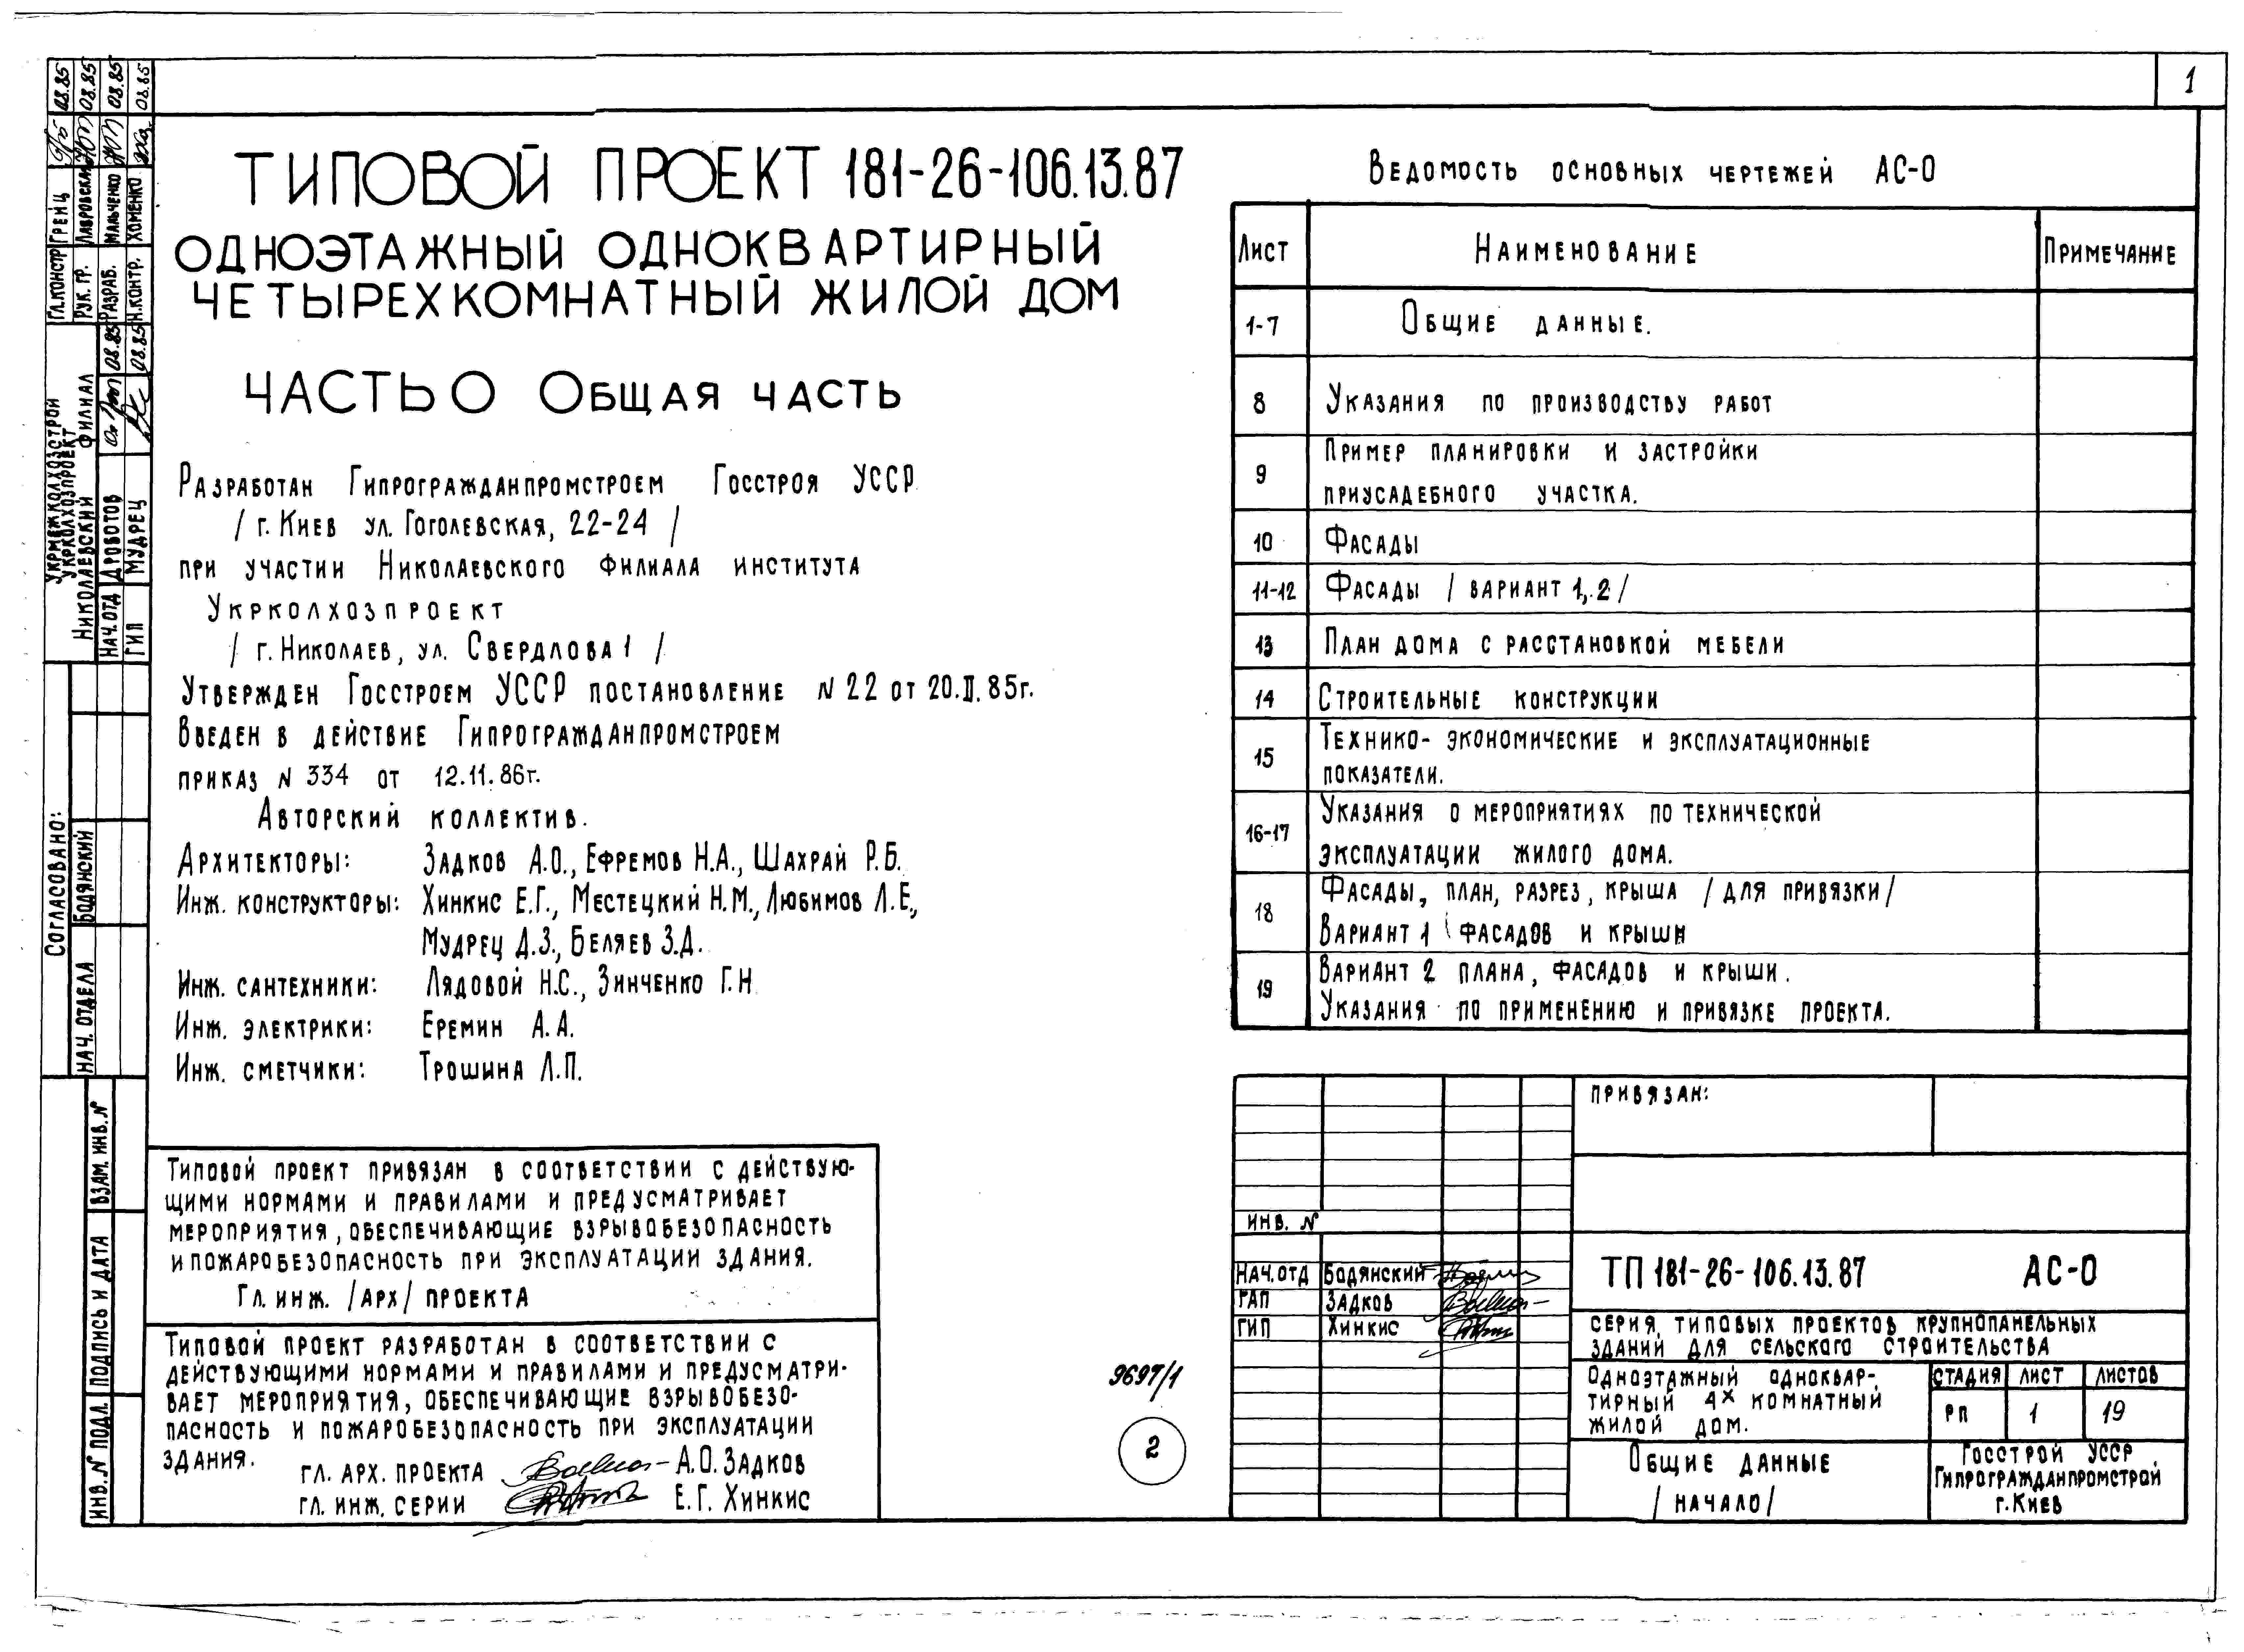 1
ТИПОВОЙ ПРОЕКТ 181-26-106.13.87
ОДНОЭТАЖНЫЙ ОДНОКВАРТИРНЫЙ
ЧЕТЫРЕХКОМНАТНЫЙ ЖИЛОЙ ДОМ
ЧАСТЬ 0 ОБЩАЯ ЧАСТЬ
РАЗРАБОТАН ГИПРОГРАЖДАНПРОМСТРОЕМ ГОССТРОЯ УССР
/ Г. КИЕВ УЛ. ГОГОЛЕВСКАЯ, 22-24 /
ПРИ УЧАСТИИ НИКОЛАЕВСКОГО ФИЛИАЛА ИНСТИТУТА
УКРКОЛХОЗПРОЕКТ
/ Г. НИКОЛАЕВ, УЛ. СВЕРДЛОВА 1 /
УТВЕРЖДЕН ГОССТРОЕМ УССР ПОСТАНОВЛЕНИЕ N 22 ОТ 20.II.85г.
ВВЕДЕН В ДЕЙСТВИЕ ГИПРОГРАЖДАНПРОМСТРОЕМ
ПРИКАЗ N 334 ОТ 12.11.86г.
АВТОРСКИЙ КОЛЛЕКТИВ.
АРХИТЕКТОРЫ: ЗАДКОВ А.О., ЕФРЕМОВ Н.А., ШАХРАЙ Р.Б.
ИНЖ. КОНСТРУКТОРЫ: ХИНКИС Е.Г., МЕСТЕЦКИЙ Н.М., ЛЮБИМОВ Л.Е.,
МУДРЕЦ Д.З., БЕЛЯЕВ З.Д.
ИНЖ. САНТЕХНИКИ: ЛЯДОВОЙ Н.С., ЗИНЧЕНКО Г.Н
ИНЖ. ЭЛЕКТРИКИ: ЕРЕМИН А.А.
ИНЖ. СМЕТЧИКИ: ТРОШИНА Л.П.
ТИПОВОЙ ПРОЕКТ ПРИВЯЗАН В СООТВЕТСТВИИ С ДЕЙСТВУЮ-
ЩИМИ НОРМАМИ И ПРАВИЛАМИ И ПРЕДУСМАТРИВАЕТ
МЕРОПРИЯТИЯ, ОБЕСПЕЧИВАЮЩИЕ ВЗРЫВОБЕЗОПАСНОСТЬ
И ПОЖАРОБЕЗОПАСНОСТЬ ПРИ ЭКСПЛУАТАЦИИ ЗДАНИЯ.
ГЛ. ИНЖ. /АРХ/ ПРОЕКТА
ТИПОВОЙ ПРОЕКТ РАЗРАБОТАН В СООТВЕТСТВИИ С
ДЕЙСТВУЮЩИМИ НОРМАМИ И ПРАВИЛАМИ И ПРЕДУСМАТРИ-
ВАЕТ МЕРОПРИЯТИЯ, ОБЕСПЕЧИВАЮЩИЕ ВЗРЫВОБЕЗО-
ПАСНОСТЬ И ПОЖАРОБЕЗОПАСНОСТЬ ПРИ ЭКСПЛУАТАЦИИ
ЗДАНИЯ.
ГЛ. АРХ. ПРОЕКТА А.О. ЗАДКОВ
ГЛ. ИНЖ. СЕРИИ Е.Г. ХИНКИС
9697/1
2
ВЕДОМОСТЬ ОСНОВНЫХ ЧЕРТЕЖЕЙ АС-0
ЛИСТ НАИМЕНОВАНИЕ ПРИМЕЧАНИЕ
1-7 ОБЩИЕ ДАННЫЕ.
8 УКАЗАНИЯ ПО ПРОИЗВОДСТВУ РАБОТ
9 ПРИМЕР ПЛАНИРОВКИ И ЗАСТРОЙКИ
ПРИУСАДЕБНОГО УЧАСТКА.
10 ФАСАДЫ
11-12 ФАСАДЫ / ВАРИАНТ 1, 2 /
13 ПЛАН ДОМА С РАССТАНОВКОЙ МЕБЕЛИ
14 СТРОИТЕЛЬНЫЕ КОНСТРУКЦИИ
15 ТЕХНИКО-ЭКОНОМИЧЕСКИЕ И ЭКСПЛУАТАЦИОННЫЕ
ПОКАЗАТЕЛИ.
16-17 УКАЗАНИЯ О МЕРОПРИЯТИЯХ ПО ТЕХНИЧЕСКОЙ
ЭКСПЛУАТАЦИИ ЖИЛОГО ДОМА.
18 ФАСАДЫ, ПЛАН, РАЗРЕЗ, КРЫША / ДЛЯ ПРИВЯЗКИ /
ВАРИАНТ 1 ФАСАДОВ И КРЫШИ
19 ВАРИАНТ 2 ПЛАНА, ФАСАДОВ И КРЫШИ.
УКАЗАНИЯ ПО ПРИМЕНЕНИЮ И ПРИВЯЗКЕ ПРОЕКТА.
ПРИВЯЗАН:
ИНВ. N
НАЧ. ОТД БОДЯНСКИЙ
ГАП ЗАДКОВ
ГИП ХИНКИС
ТП 181-26-106.13.87 АС-0
СЕРИЯ ТИПОВЫХ ПРОЕКТОВ КРУПНОПАНЕЛЬНЫХ
ЗДАНИЙ ДЛЯ СЕЛЬСКОГО СТРОИТЕЛЬСТВА
ОДНОЭТАЖНЫЙ ОДНОКВАР-
ТИРНЫЙ 4Х КОМНАТНЫЙ
ЖИЛОЙ ДОМ.
СТАДИЯ ЛИСТ ЛИСТОВ
РП 1 19
ОБЩИЕ ДАННЫЕ
/ НАЧАЛО /
ГОССТРОЙ УССР
ГИПРОГРАЖДАНПРОМСТРОЙ
г. КИЕВ
ГЛ.КОНСТР ГРЕНЦ 08.85
РУК. ГР. ЛАВРОВСКАЯ 08.85
РАЗРАБ. МАЛЬЧЕНКО 08.85
Н.КОНТР. ХОМЕНКО 08.85
УКРМЕЖКОЛХОЗСТРОЙ
УКРКОЛХОЗПРОЕКТ
НИКОЛАЕВСКИЙ ФИЛИАЛ
НАЧ. ОТД ДРОВОТОВ 08.85
ГИП МУДРЕЦ 08.85
СОГЛАСОВАНО:
НАЧ. ОТДЕЛА БОДЯНСКИЙ
ВЗАМ. ИНВ. N
ПОДПИСЬ И ДАТА
ИНВ. N ПОДЛ.